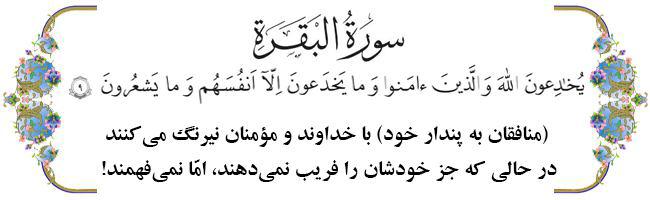 سورة البقرة
يُخَٰدِعونَ اللهَ وَالَّذينَ ءامَنوا وَما يَخدَعونَ اِلّآ اَنفُسَهُم وَما يَشعُرونَ ۹
(منافقان به پندار خود) با خداوند و مؤمنان نیرنگ می‌کنند
در حالی که جز خودشان را فریب نمی‌دهند، امّا نمی‌فهمند!